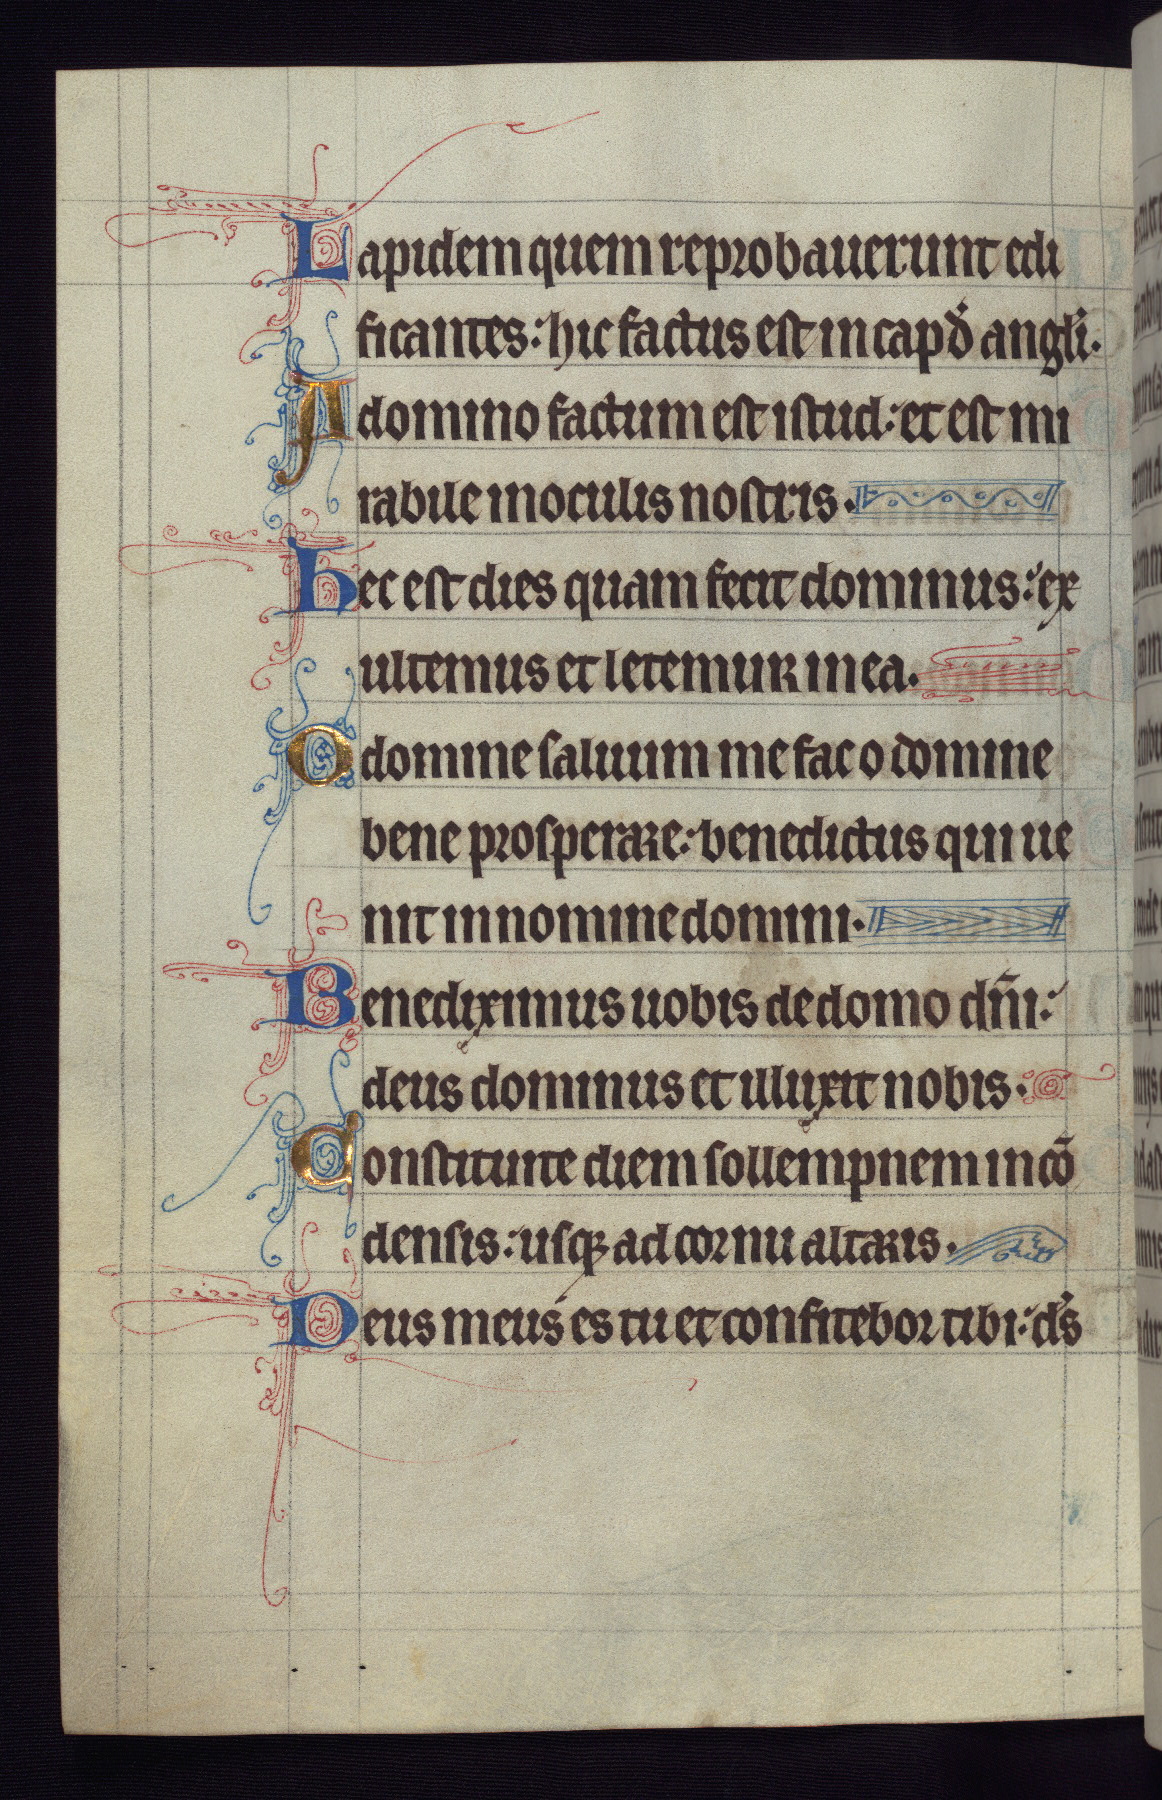 Lapidem quem reprobauerunt edi
ficantes: hic factus est in capđ angl'i.
A domino factum est istud: et est mi
rabile in oculis nostris.
Hec est dies quam fecit dominus: ex
ultemus et letemur in ea.
O domine saluum me fac o domine
bene prosperare: benedictus qui ue
nit in nomine domini.
Benediximus uobis de domo dn̄i:
deus dominus et illuxit nobis.
Constituite diem sollempnem in cō
densis: usqꝫ ad cornu altaris.
Deus meus es tu et confitebor tibi: ds̄